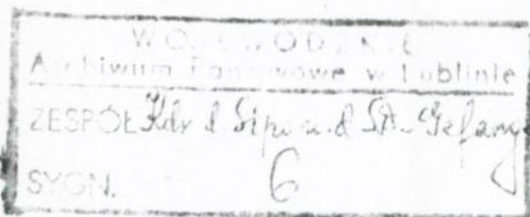 WOJEWÓDZKIE
Archiwum Państwowe w Lublinie
ZESPÓŁ Kdr d. Sipo u. d SD-Gefäng
SYGN. 6